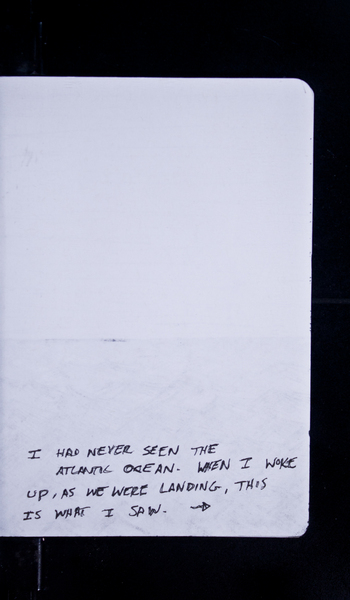 I HAD NEVER SEEN THE
ATLANTIC OCEAN. WHEN I WOKE
UP, AS WE WERE LANDING, THIS
IS WHAT I SAW. →